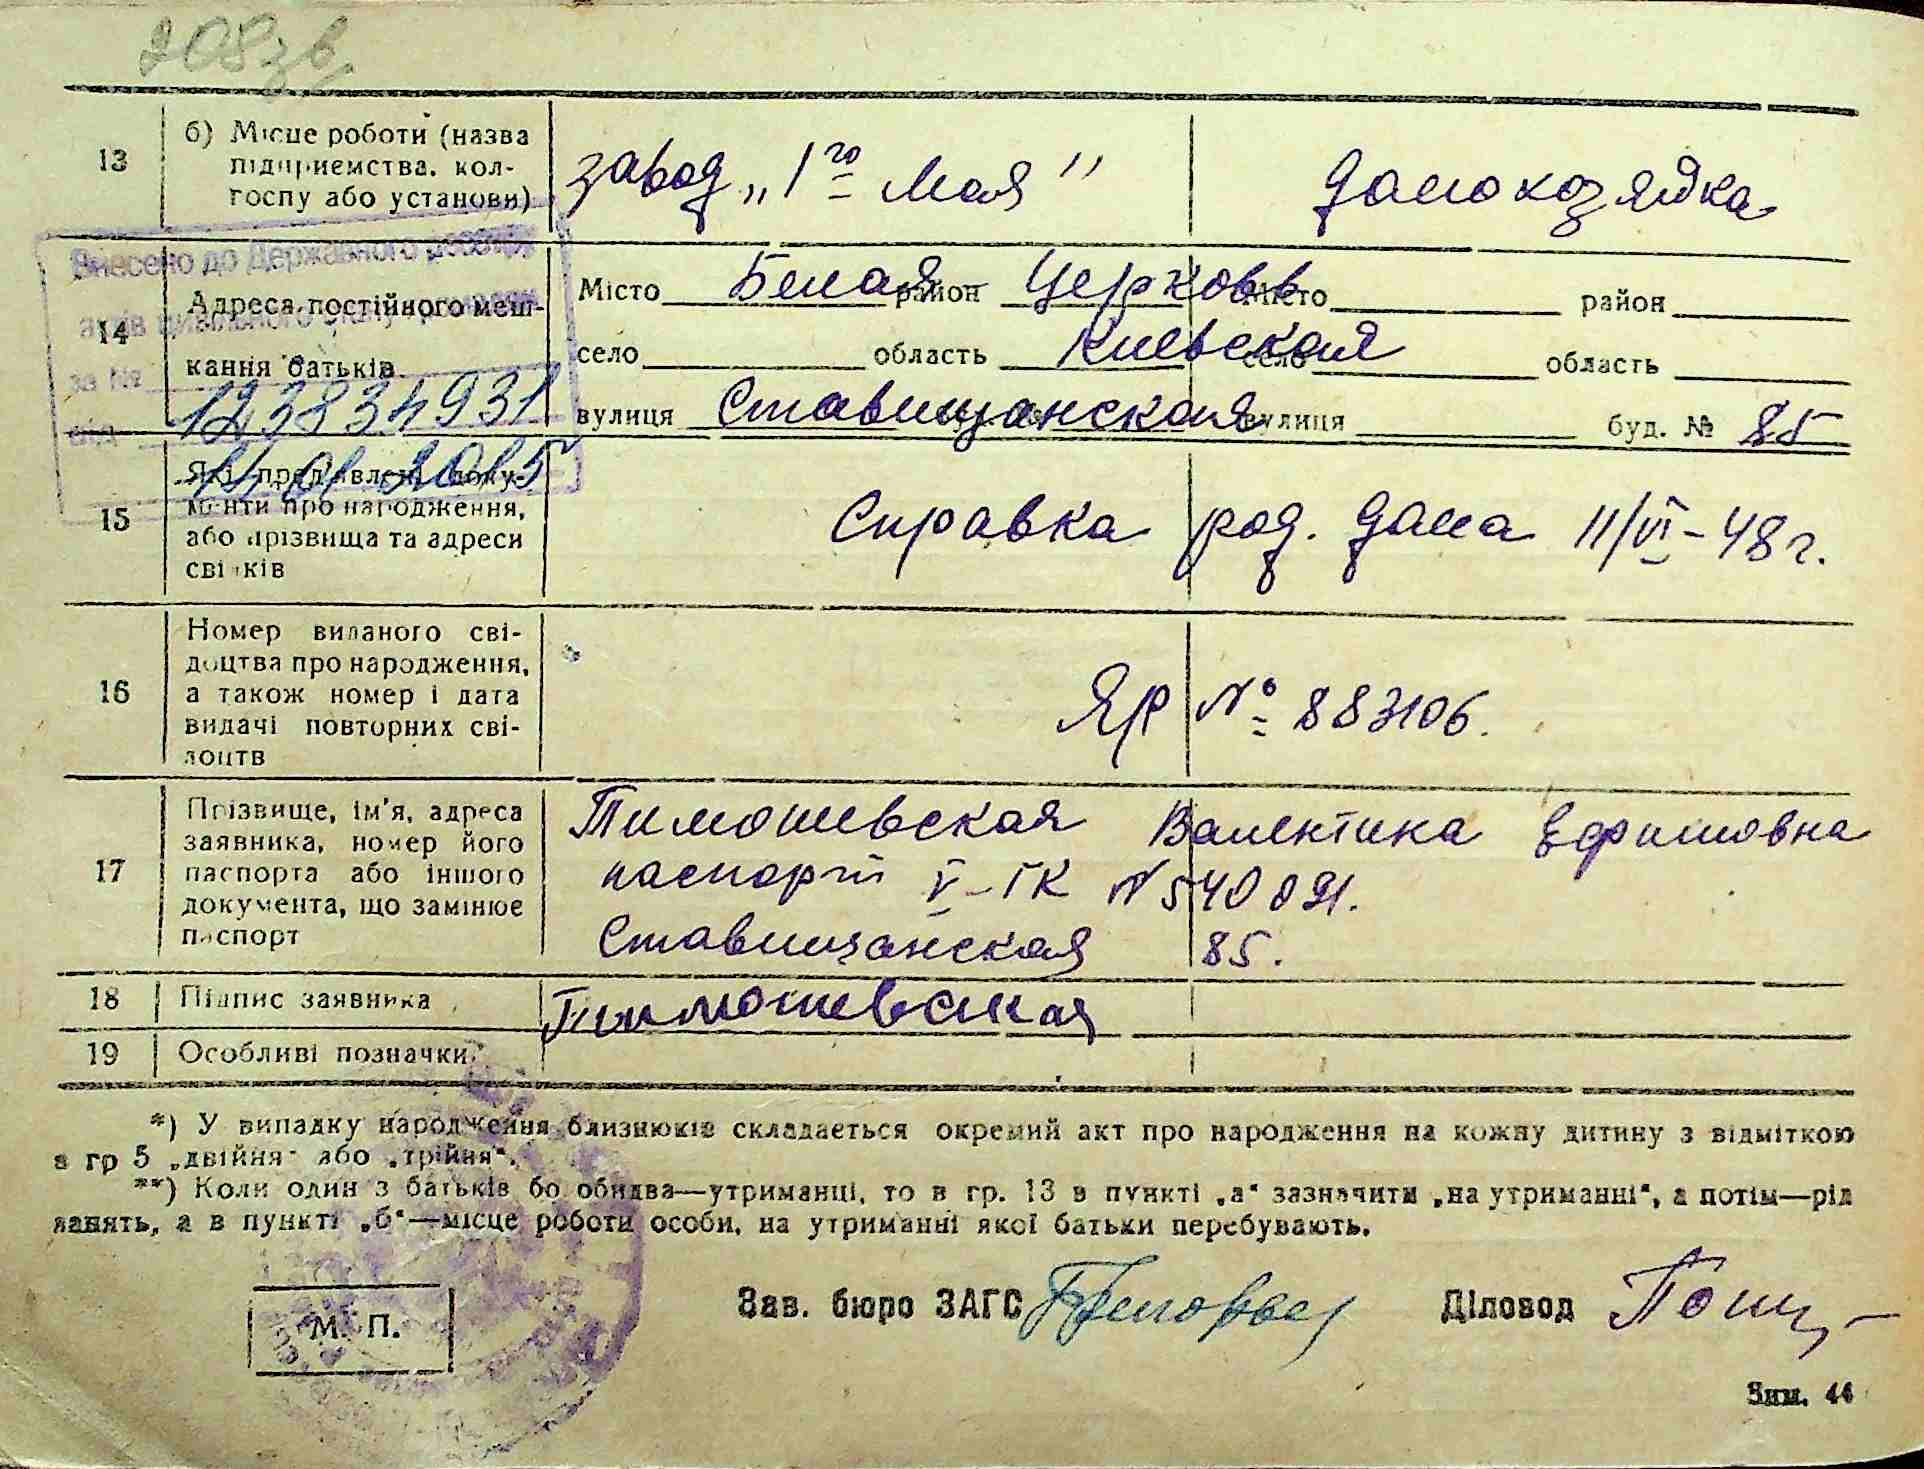 208зв
13 б) Місце роботи (назва
підприємства, кол-
госпу або установи)
завод „1го Мая” домохозяйка
Внесено до Державного реєстру
актів цивільного стану громадян
за № 123834931
від 14.01.2015
14 Адреса постійного меш-
кання батьків
Місто Белая район Церковь Місто район
село область Киевская село область
вулиця Ставищанская вулиця буд. № 85
15 Які пред'явлені доку-
менти про народження,
або прізвища та адреси
свідків
Справка род. дома 11/VI-48 г.
16 Номер виданого сві-
доцтва про народження,
а також номер і дата
видачі повторних сві-
доцтв
ЯР № 883106.
17 Прізвище, ім'я, адреса
заявника, номер його
паспорта або іншого
документа, що замінює
паспорт
Тимошевская Валентина Ефимовна
паспорт V-ГК № 540091.
Ставищанская 85.
18 Підпис заявника Тимошевская
19 Особливі позначки
*) У випадку народження близнюків складається окремий акт про народження на кожну дитину з відміткою
в гр 5 „двійня" або „трійня".
**) Коли один з батьків бо обидва—утриманці, то в гр. 13 в пункті „а" зазначити „на утриманні", а потім—рід
занять, а в пункті „б"—місце роботи особи, на утриманні якої батьки перебувають.
М. П.
Зав. бюро ЗАГС Діловод
Зим. 44